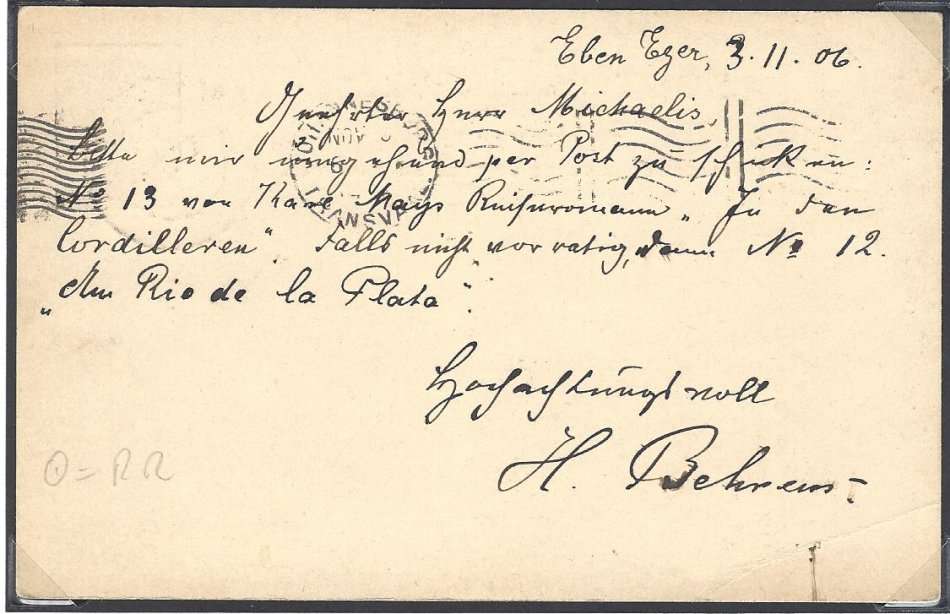 Eben Ezer, 3.11.06.
Geehrter Herr Michaelis,
Bitte mir umgehend per Post zu schicken:
No 13 von Karl Mays Reiseromann „In den
Cordilleren“. Falls nicht vorrätig, dann No 12.
„Am Rio de la Plata“.
Hochachtungsvoll
H. Behrens.
JOHANNESBURG
NOV
TRANSVAAL
O = RR